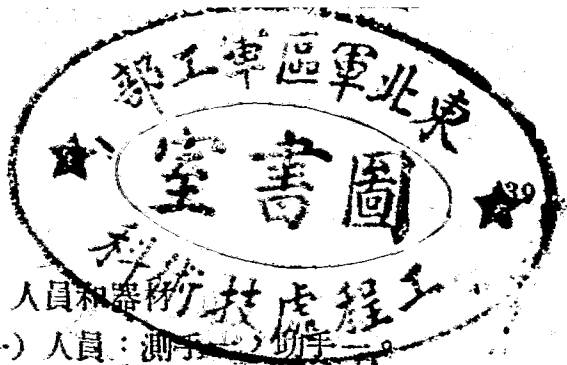 東北軍區軍工部
圖書室
工程處技術科
39
人員和器材
人員：測手一，助手一。